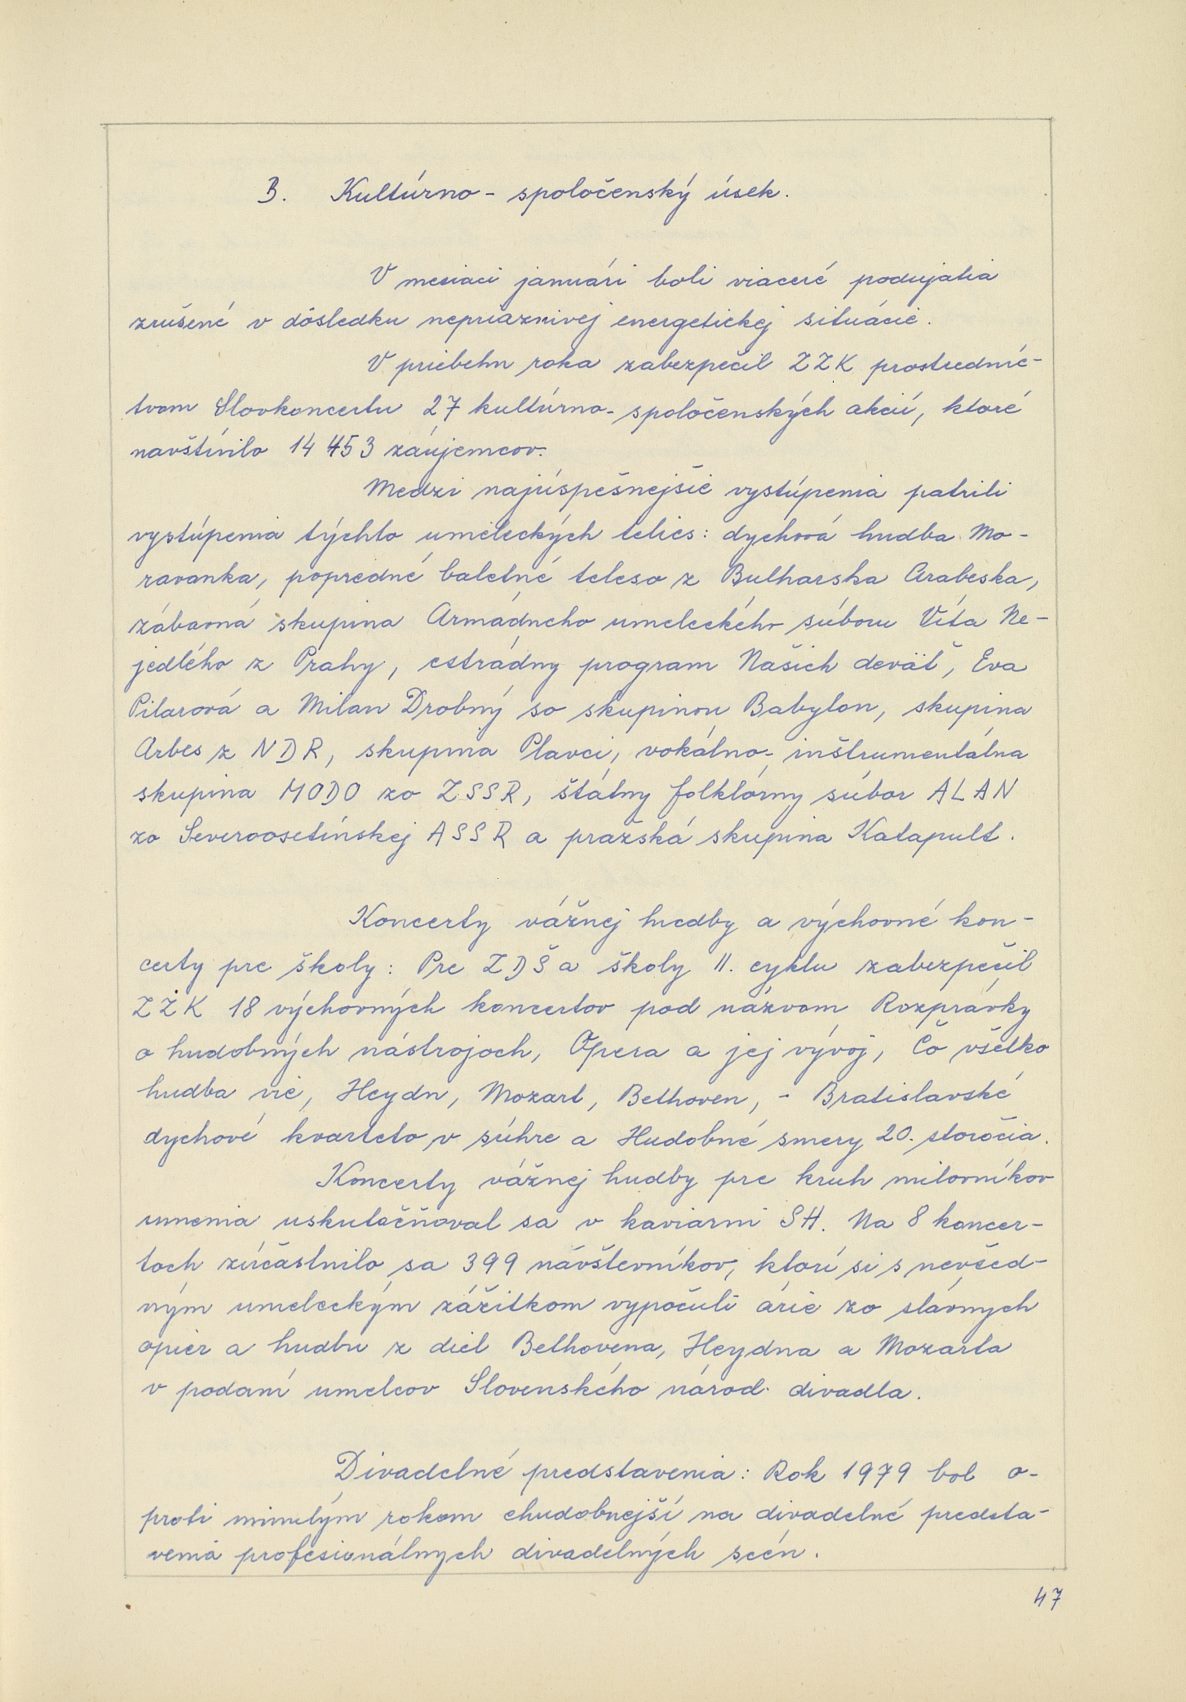 B. Kultúrno - spoločenský úsek.
V mesiaci januári boli viaceré podujatia
zrušené v dôsledku nepriaznivej energetickej situácie.
V priebehu roka zabezpečil ZZK prostredníc-
tvom Slovkoncertu 27 kultúrno-spoločenských akcií, ktoré
navštívilo 14 453 záujemcov.
Medzi najúspešnejšie vystúpenia patrili
vystúpenia týchto umeleckých telies: dychová hudba Mo-
ravanka, popredné baletné teleso z Bulharska Arabeska,
zábavná skupina Armádneho umeleckého súboru Víta Ne-
jedlého z Prahy, estrádny program Našich deväť, Eva
Pilarová a Milan Drobný so skupinou Babylon, skupina
Arbes z NDR, skupina Plavci, vokálno-inštrumentálna
skupina MODO zo ZSSR, štátny folklórny súbor ALAN
zo Severoosetínskej ASSR a pražská skupina Katapult.
Koncerty vážnej hudby a výchovné kon-
certy pre školy: Pre ZDŠ a školy II. cyklu zabezpečil
ZZK 18 výchovných koncertov pod názvom Rozprávky
o hudobných nástrojoch, Opera a jej vývoj, Čo všetko
hudba vie, Heydn, Mozart, Bethoven, - Bratislavské
dychové kvarteto v súhre a Hudobné smery 20. storočia.
Koncerty vážnej hudby pre kruh milovníkov
umenia uskutočňoval sa v kaviarni SH. Na 8 koncer-
toch zúčastnilo sa 399 návštevníkov, ktorí si s nevšed-
ným umeleckým zážitkom vypočuli árie zo slávnych
opier a hudbu z diel Bethovena, Heydna a Mozarta
v podaní umelcov Slovenského národ. divadla.
Divadelné predstavenia: Rok 1979 bol o-
proti minulým rokom chudobnejší na divadelné predsta-
venia profesionálnych divadelných scén.
47